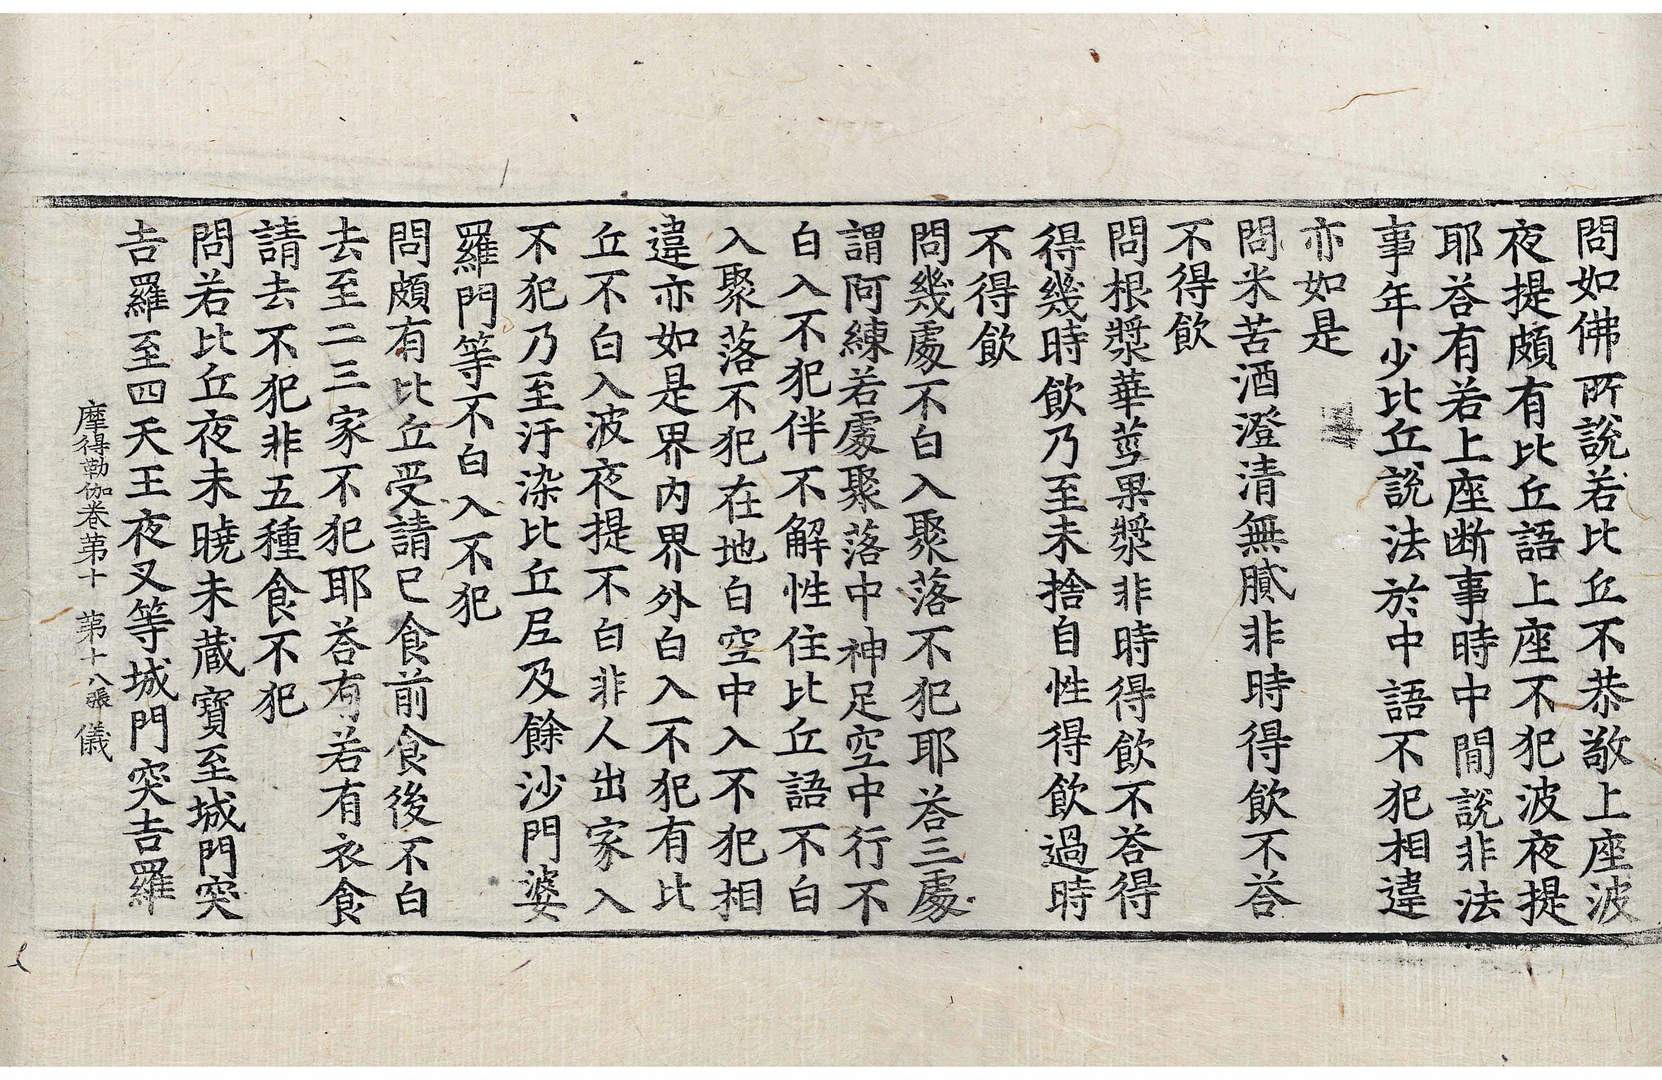 問如佛所說若比丘不恭敬上座波
夜提頗有比丘語上座不犯波夜提
耶荅有若上座断事時中閒說非法
事年少比丘說法於中語不犯相違
亦如是
問米苦酒澄清無膩非時得飲不荅
不得飲
問根漿華莖果漿非時得飲不荅得
得幾時飲乃至未捨自性得飲過時
不得飲
問幾處不白入聚落不犯耶荅三處
謂阿練若處聚落中神足空中行不
白入不犯伴不解性住比丘語不白
入聚落不犯在地白空中入不犯相
違亦如是界內界外白入不犯有比
丘不白入波夜提不白非人出家入
不犯乃至汙染比丘尼及餘沙門婆
羅門等不白入不犯
問頗有比丘受請已食前食後不白
去至二三家不犯耶荅有若有衣食
請去不犯非五種食不犯
問若比丘夜未曉未藏寶至城門突
吉羅至四天王夜叉等城門突吉羅
摩得勒伽卷苐十 苐十八張 儀